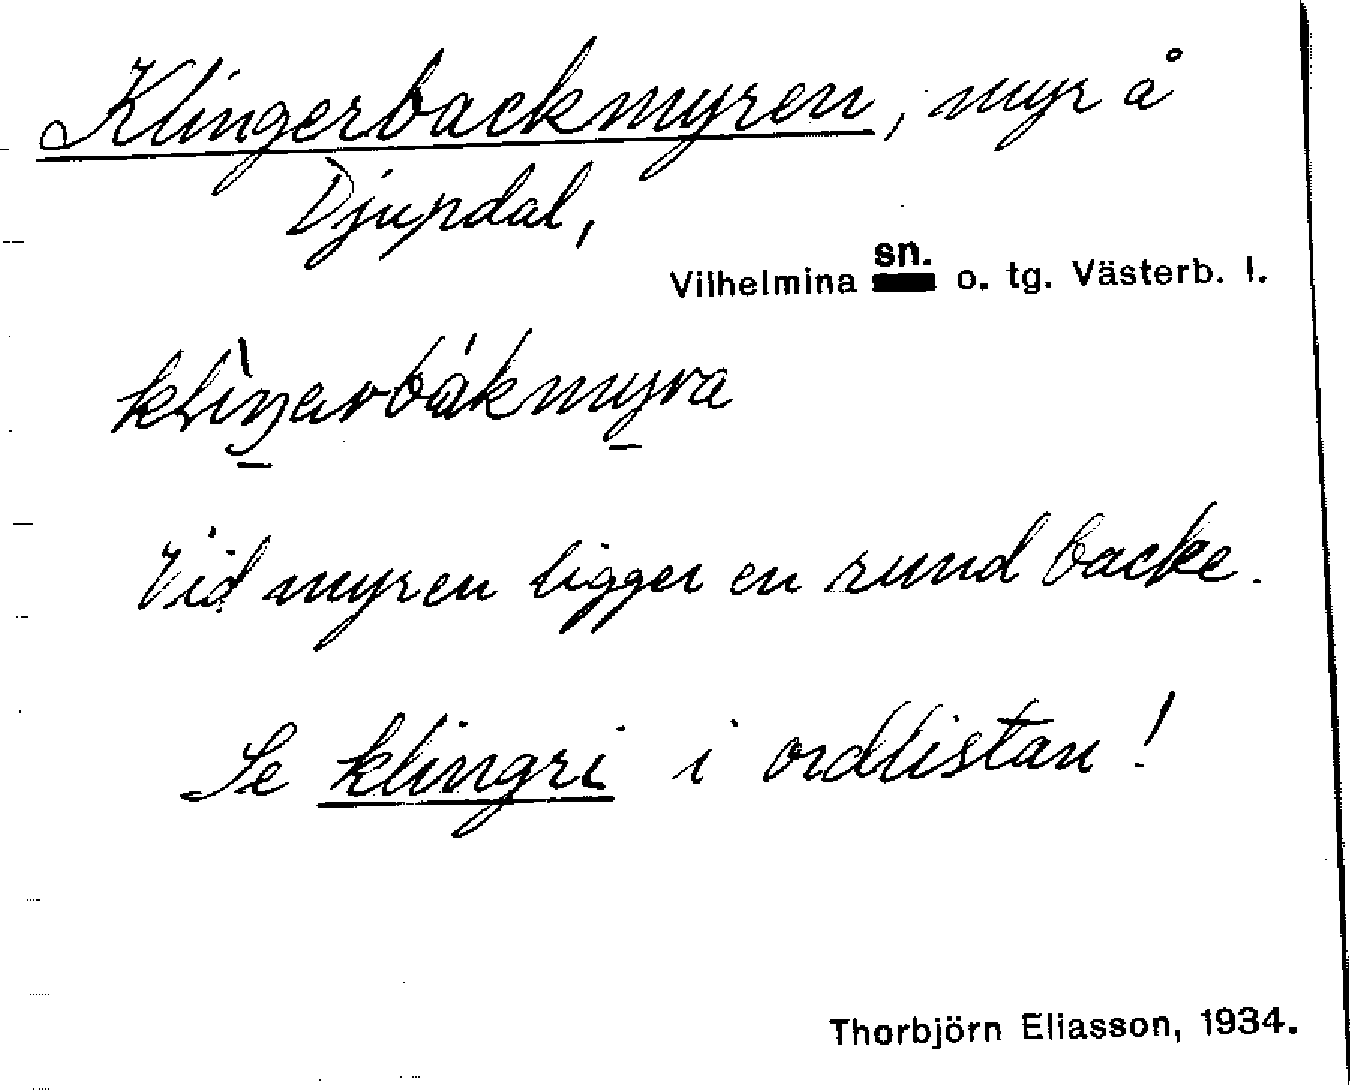 Klingerbackmyren, myr å
Djupdal,
Vilhelmina sn. o. tg. Västerb. l.
klìŋarbákmyra
Vid myren ligger en rund backe.
Se klingri i ordlistan!
Thorbjörn Eliasson, 1934.